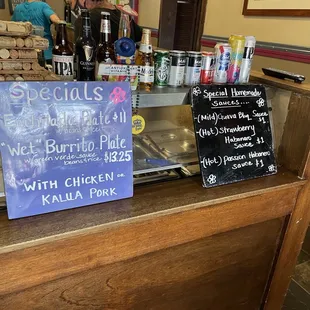 Specials
Plate $11
beans rice
Wet Burrito Plate
Green verde sauce
beans & rice $13.25
With Chicken or
Kalua Pork
Special Homemade
Sauces....
(Mild) Guava BBQ Sauce
$1
(Hot) Strawberry
Habanero
Sauce $1
(Hot) Passion Habanero
Sauce $1
GUINNESS